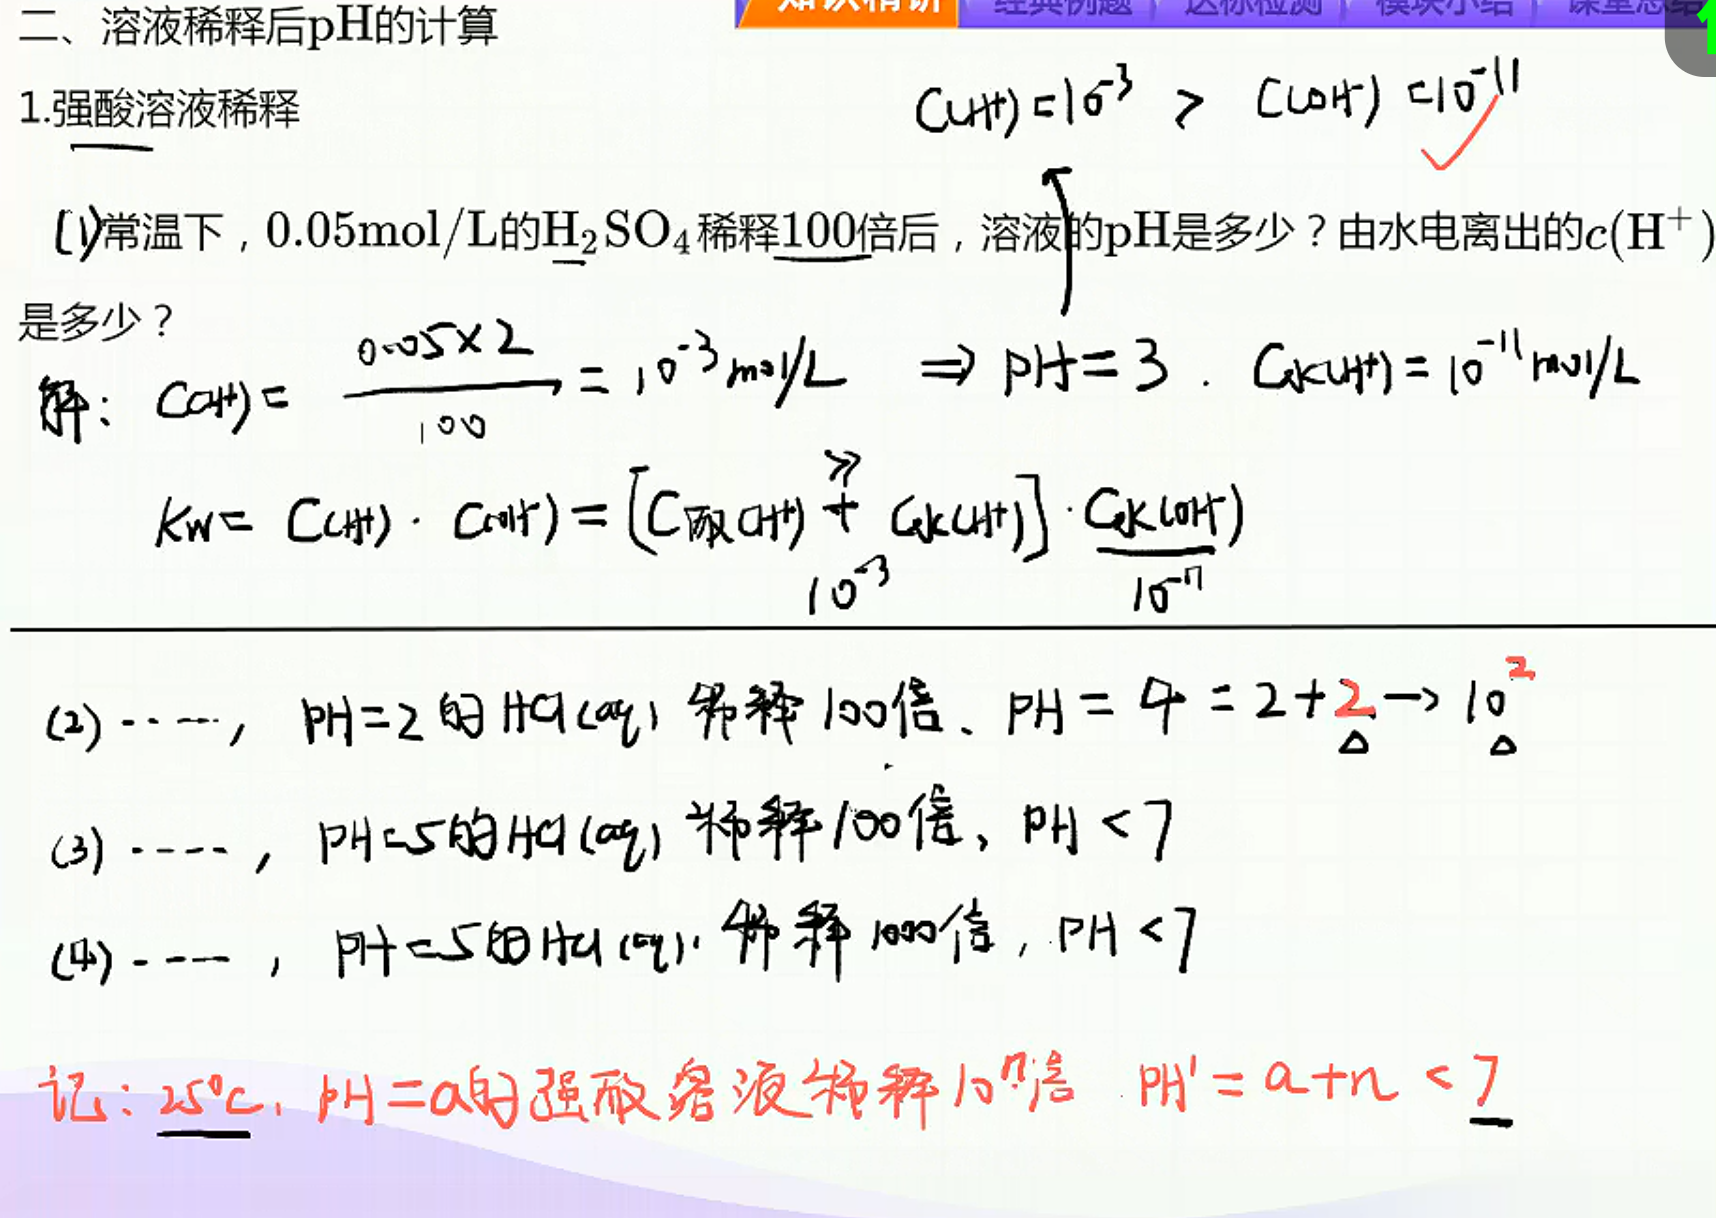 知识精讲 经典例题 达标检测 模块小结 课堂总结
二、溶液稀释后pH的计算
1.强酸溶液稀释
C(H⁺)=10⁻³ > C(OH⁻)=10⁻¹¹
(1)常温下，0.05mol/L的H₂SO₄稀释100倍后，溶液的pH是多少？由水电离出的c(H⁺)
是多少？
解：C(H⁺)= 0.05×2 / 100 = 10⁻³mol/L ⇒ PH=3. C水(H⁺)=10⁻¹¹mol/L
Kw= C(H⁺)·C(OH⁻)=[C酸(H⁺) + C水(H⁺)]·C水(OH⁻)
≫
10⁻³ 10⁻¹¹
(2)·····，PH=2的HCl(aq)稀释100倍、PH=4=2+2→10²
(3)····，PH=5的HCl(aq)稀释100倍、PH<7
(4)----，PH=5的HCl(aq)，稀释1000倍，PH<7
记：25°C，pH=a的强酸溶液稀释10ⁿ倍 PH'=a+n<7